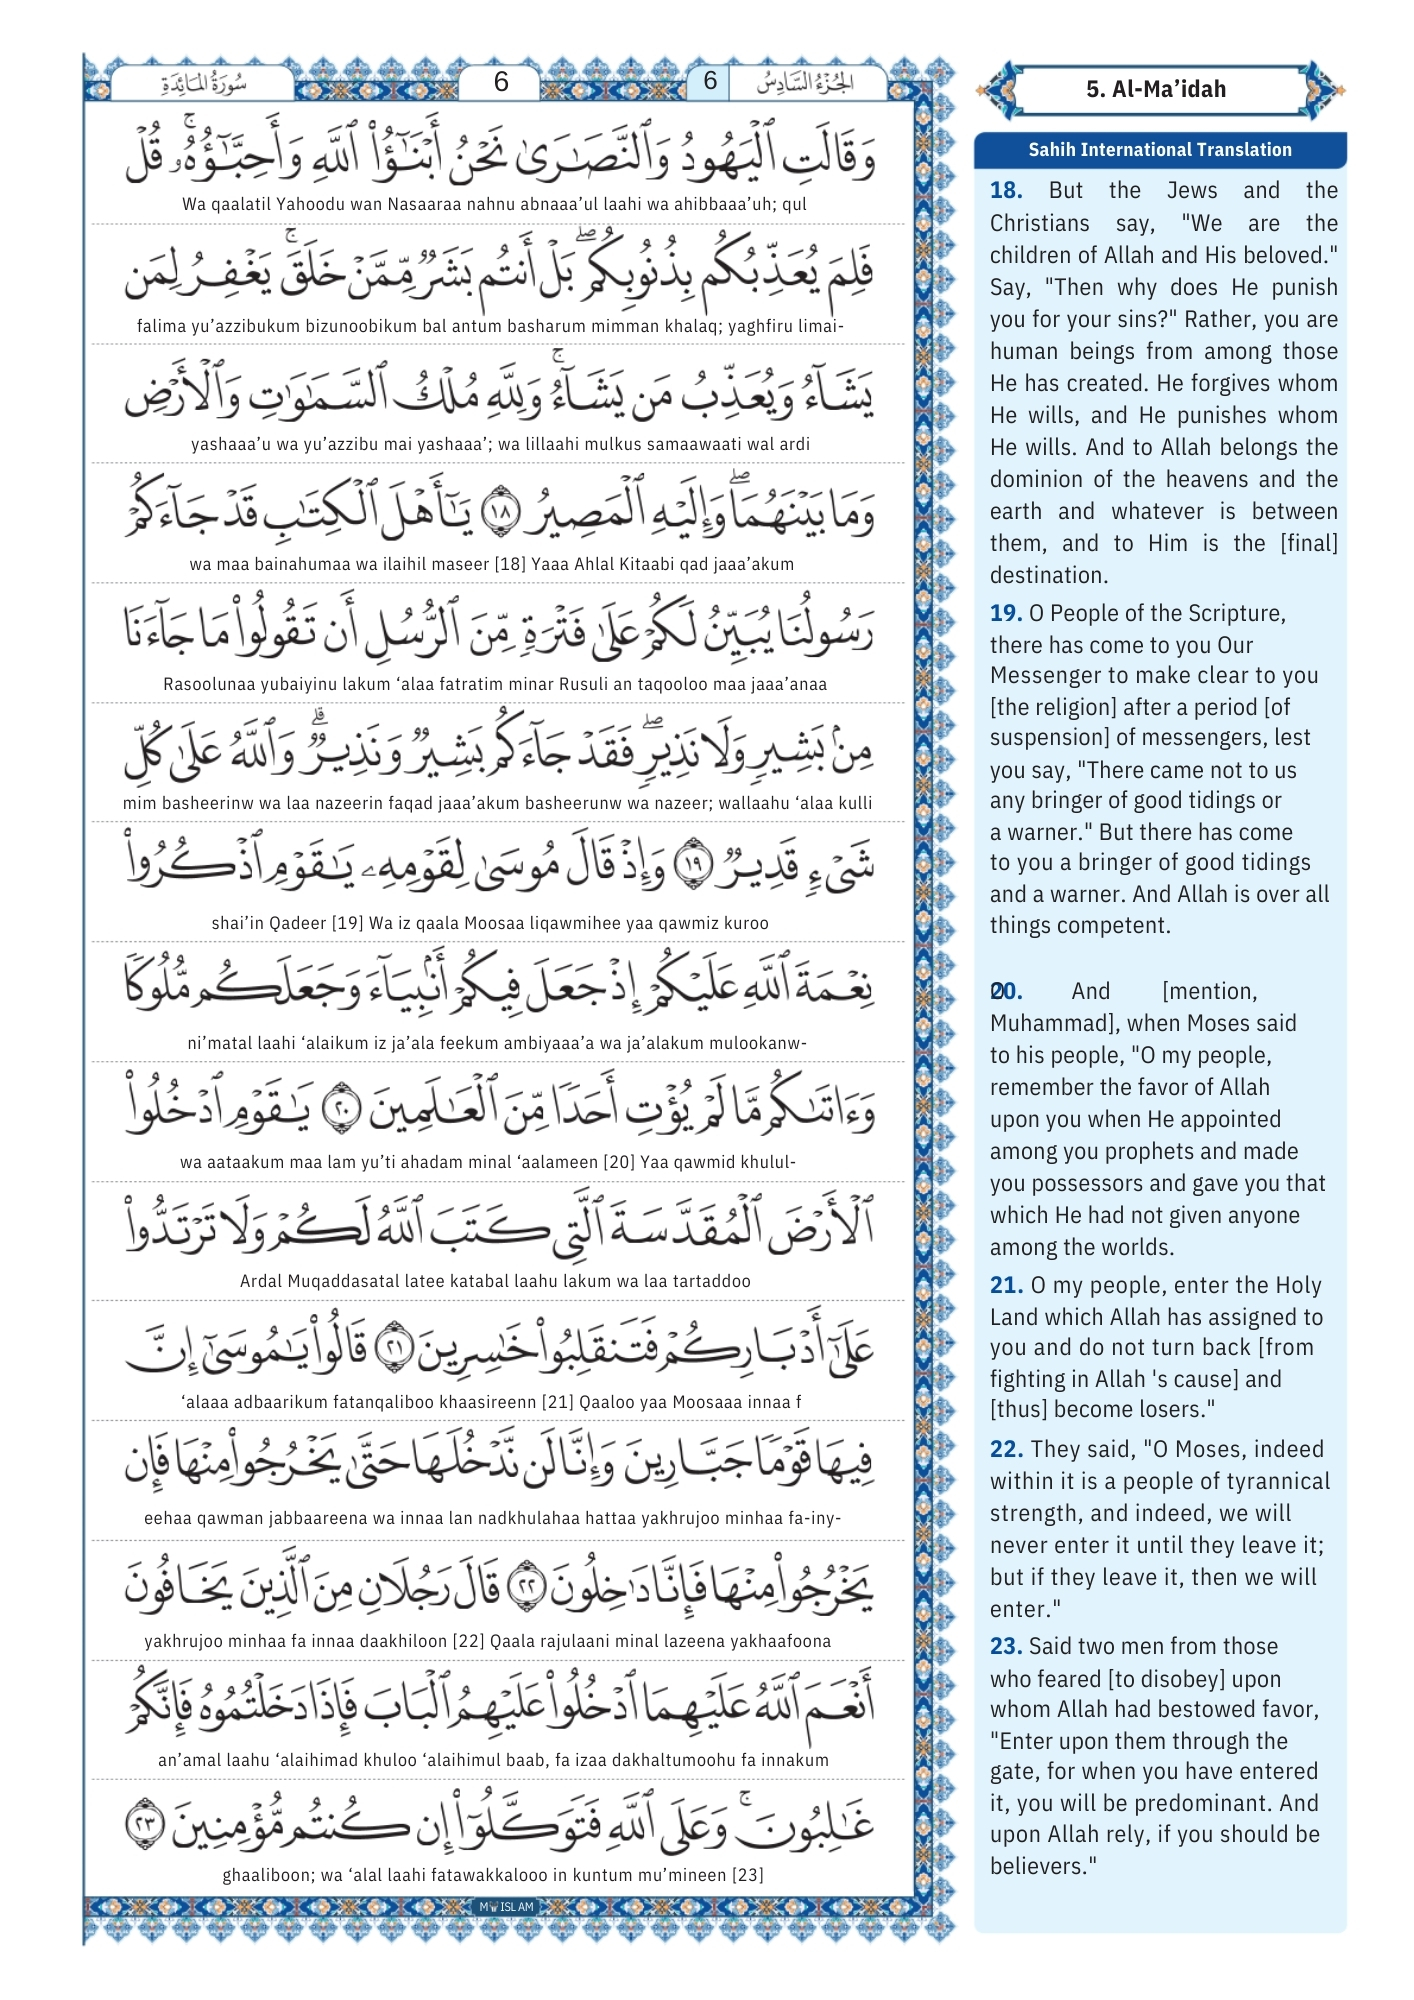 سُورَةُ المَائِدَةِ
6
6
الجُزْءُ السَّادِسُ
وَقَالَتِ ٱلْيَهُودُ وَٱلنَّصَـٰرَىٰ نَحْنُ أَبْنَـٰٓؤُا۟ ٱللَّهِ وَأَحِبَّـٰٓؤُهُۥ ۚ قُلْ
Wa qaalatil Yahoodu wan Nasaaraa nahnu abnaaa’ul laahi wa ahibbaaa’uh; qul
فَلِمَ يُعَذِّبُكُم بِذُنُوبِكُم ۖ بَلْ أَنتُم بَشَرٌ مِّمَّنْ خَلَقَ ۚ يَغْفِرُ لِمَن
falima yu’azzibukum bizunoobikum bal antum basharum mimman khalaq; yaghfiru limai-
يَشَآءُ وَيُعَذِّبُ مَن يَشَآءُ ۚ وَلِلَّهِ مُلْكُ ٱلسَّمَـٰوَٰتِ وَٱلْأَرْضِ
yashaaa’u wa yu’azzibu mai yashaaa’; wa lillaahi mulkus samaawaati wal ardi
وَمَا بَيْنَهُمَا ۖ وَإِلَيْهِ ٱلْمَصِيرُ ١٨ يَـٰٓأَهْلَ ٱلْكِتَـٰبِ قَدْ جَآءَكُمْ
wa maa bainahumaa wa ilaihil maseer [18] Yaaa Ahlal Kitaabi qad jaaa’akum
رَسُولُنَا يُبَيِّنُ لَكُمْ عَلَىٰ فَتْرَةٍ مِّنَ ٱلرُّسُلِ أَن تَقُولُوا۟ مَا جَآءَنَا
Rasoolunaa yubaiyinu lakum ‘alaa fatratim minar Rusuli an taqooloo maa jaaa’anaa
مِنۢ بَشِيرٍ وَلَا نَذِيرٍ ۖ فَقَدْ جَآءَكُم بَشِيرٌ وَنَذِيرٌ ۗ وَٱللَّهُ عَلَىٰ كُلِّ
mim basheerinw wa laa nazeerin faqad jaaa’akum basheerunw wa nazeer; wallaahu ‘alaa kulli
شَىْءٍ قَدِيرٌ ١٩ وَإِذْ قَالَ مُوسَىٰ لِقَوْمِهِۦ يَـٰقَوْمِ ٱذْكُرُوا۟
shai’in Qadeer [19] Wa iz qaala Moosaa liqawmihee yaa qawmiz kuroo
نِعْمَةَ ٱللَّهِ عَلَيْكُمْ إِذْ جَعَلَ فِيكُمْ أَنۢبِيَآءَ وَجَعَلَكُم مُّلُوكًا
ni’matal laahi ‘alaikum iz ja’ala feekum ambiyaaa’a wa ja’alakum mulookanw-
وَءَاتَىٰكُم مَّا لَمْ يُؤْتِ أَحَدًا مِّنَ ٱلْعَـٰلَمِينَ ٢٠ يَـٰقَوْمِ ٱدْخُلُوا۟
wa aataakum maa lam yu’ti ahadam minal ‘aalameen [20] Yaa qawmid khulul-
ٱلْأَرْضَ ٱلْمُقَدَّسَةَ ٱلَّتِى كَتَبَ ٱللَّهُ لَكُمْ وَلَا تَرْتَدُّوا۟
Ardal Muqaddasatal latee katabal laahu lakum wa laa tartaddoo
عَلَىٰٓ أَدْبَارِكُمْ فَتَنقَلِبُوا۟ خَـٰسِرِينَ ٢١ قَالُوا۟ يَـٰمُوسَىٰٓ إِنَّ
‘alaaa adbaarikum fatanqaliboo khaasireenn [21] Qaaloo yaa Moosaaa innaa f
فِيهَا قَوْمًا جَبَّارِينَ وَإِنَّا لَن نَّدْخُلَهَا حَتَّىٰ يَخْرُجُوا۟ مِنْهَا فَإِن
eehaa qawman jabbaareena wa innaa lan nadkhulahaa hattaa yakhrujoo minhaa fa-iny-
يَخْرُجُوا۟ مِنْهَا فَإِنَّا دَٰخِلُونَ ٢٢ قَالَ رَجُلَانِ مِنَ ٱلَّذِينَ يَخَافُونَ
yakhrujoo minhaa fa innaa daakhiloon [22] Qaala rajulaani minal lazeena yakhaafoona
أَنْعَمَ ٱللَّهُ عَلَيْهِمَا ٱدْخُلُوا۟ عَلَيْهِمُ ٱلْبَابَ فَإِذَا دَخَلْتُمُوهُ فَإِنَّكُمْ
an’amal laahu ‘alaihimad khuloo ‘alaihimul baab, fa izaa dakhaltumoohu fa innakum
غَـٰلِبُونَ ۚ وَعَلَى ٱللَّهِ فَتَوَكَّلُوٓا۟ إِن كُنتُم مُّؤْمِنِينَ ٢٣
ghaaliboon; wa ‘alal laahi fatawakkalooo in kuntum mu’mineen [23]
5. Al-Ma’idah
Sahih International Translation
18. But the Jews and the
Christians say, "We are the
children of Allah and His beloved."
Say, "Then why does He punish
you for your sins?" Rather, you are
human beings from among those
He has created. He forgives whom
He wills, and He punishes whom
He wills. And to Allah belongs the
dominion of the heavens and the
earth and whatever is between
them, and to Him is the [final]
destination.
19. O People of the Scripture,
there has come to you Our
Messenger to make clear to you
[the religion] after a period [of
suspension] of messengers, lest
you say, "There came not to us
any bringer of good tidings or
a warner." But there has come
to you a bringer of good tidings
and a warner. And Allah is over all
things competent.
20. And [mention,
Muhammad], when Moses said
to his people, "O my people,
remember the favor of Allah
upon you when He appointed
among you prophets and made
you possessors and gave you that
which He had not given anyone
among the worlds.
21. O my people, enter the Holy
Land which Allah has assigned to
you and do not turn back [from
fighting in Allah 's cause] and
[thus] become losers."
22. They said, "O Moses, indeed
within it is a people of tyrannical
strength, and indeed, we will
never enter it until they leave it;
but if they leave it, then we will
enter."
23. Said two men from those
who feared [to disobey] upon
whom Allah had bestowed favor,
"Enter upon them through the
gate, for when you have entered
it, you will be predominant. And
upon Allah rely, if you should be
believers."